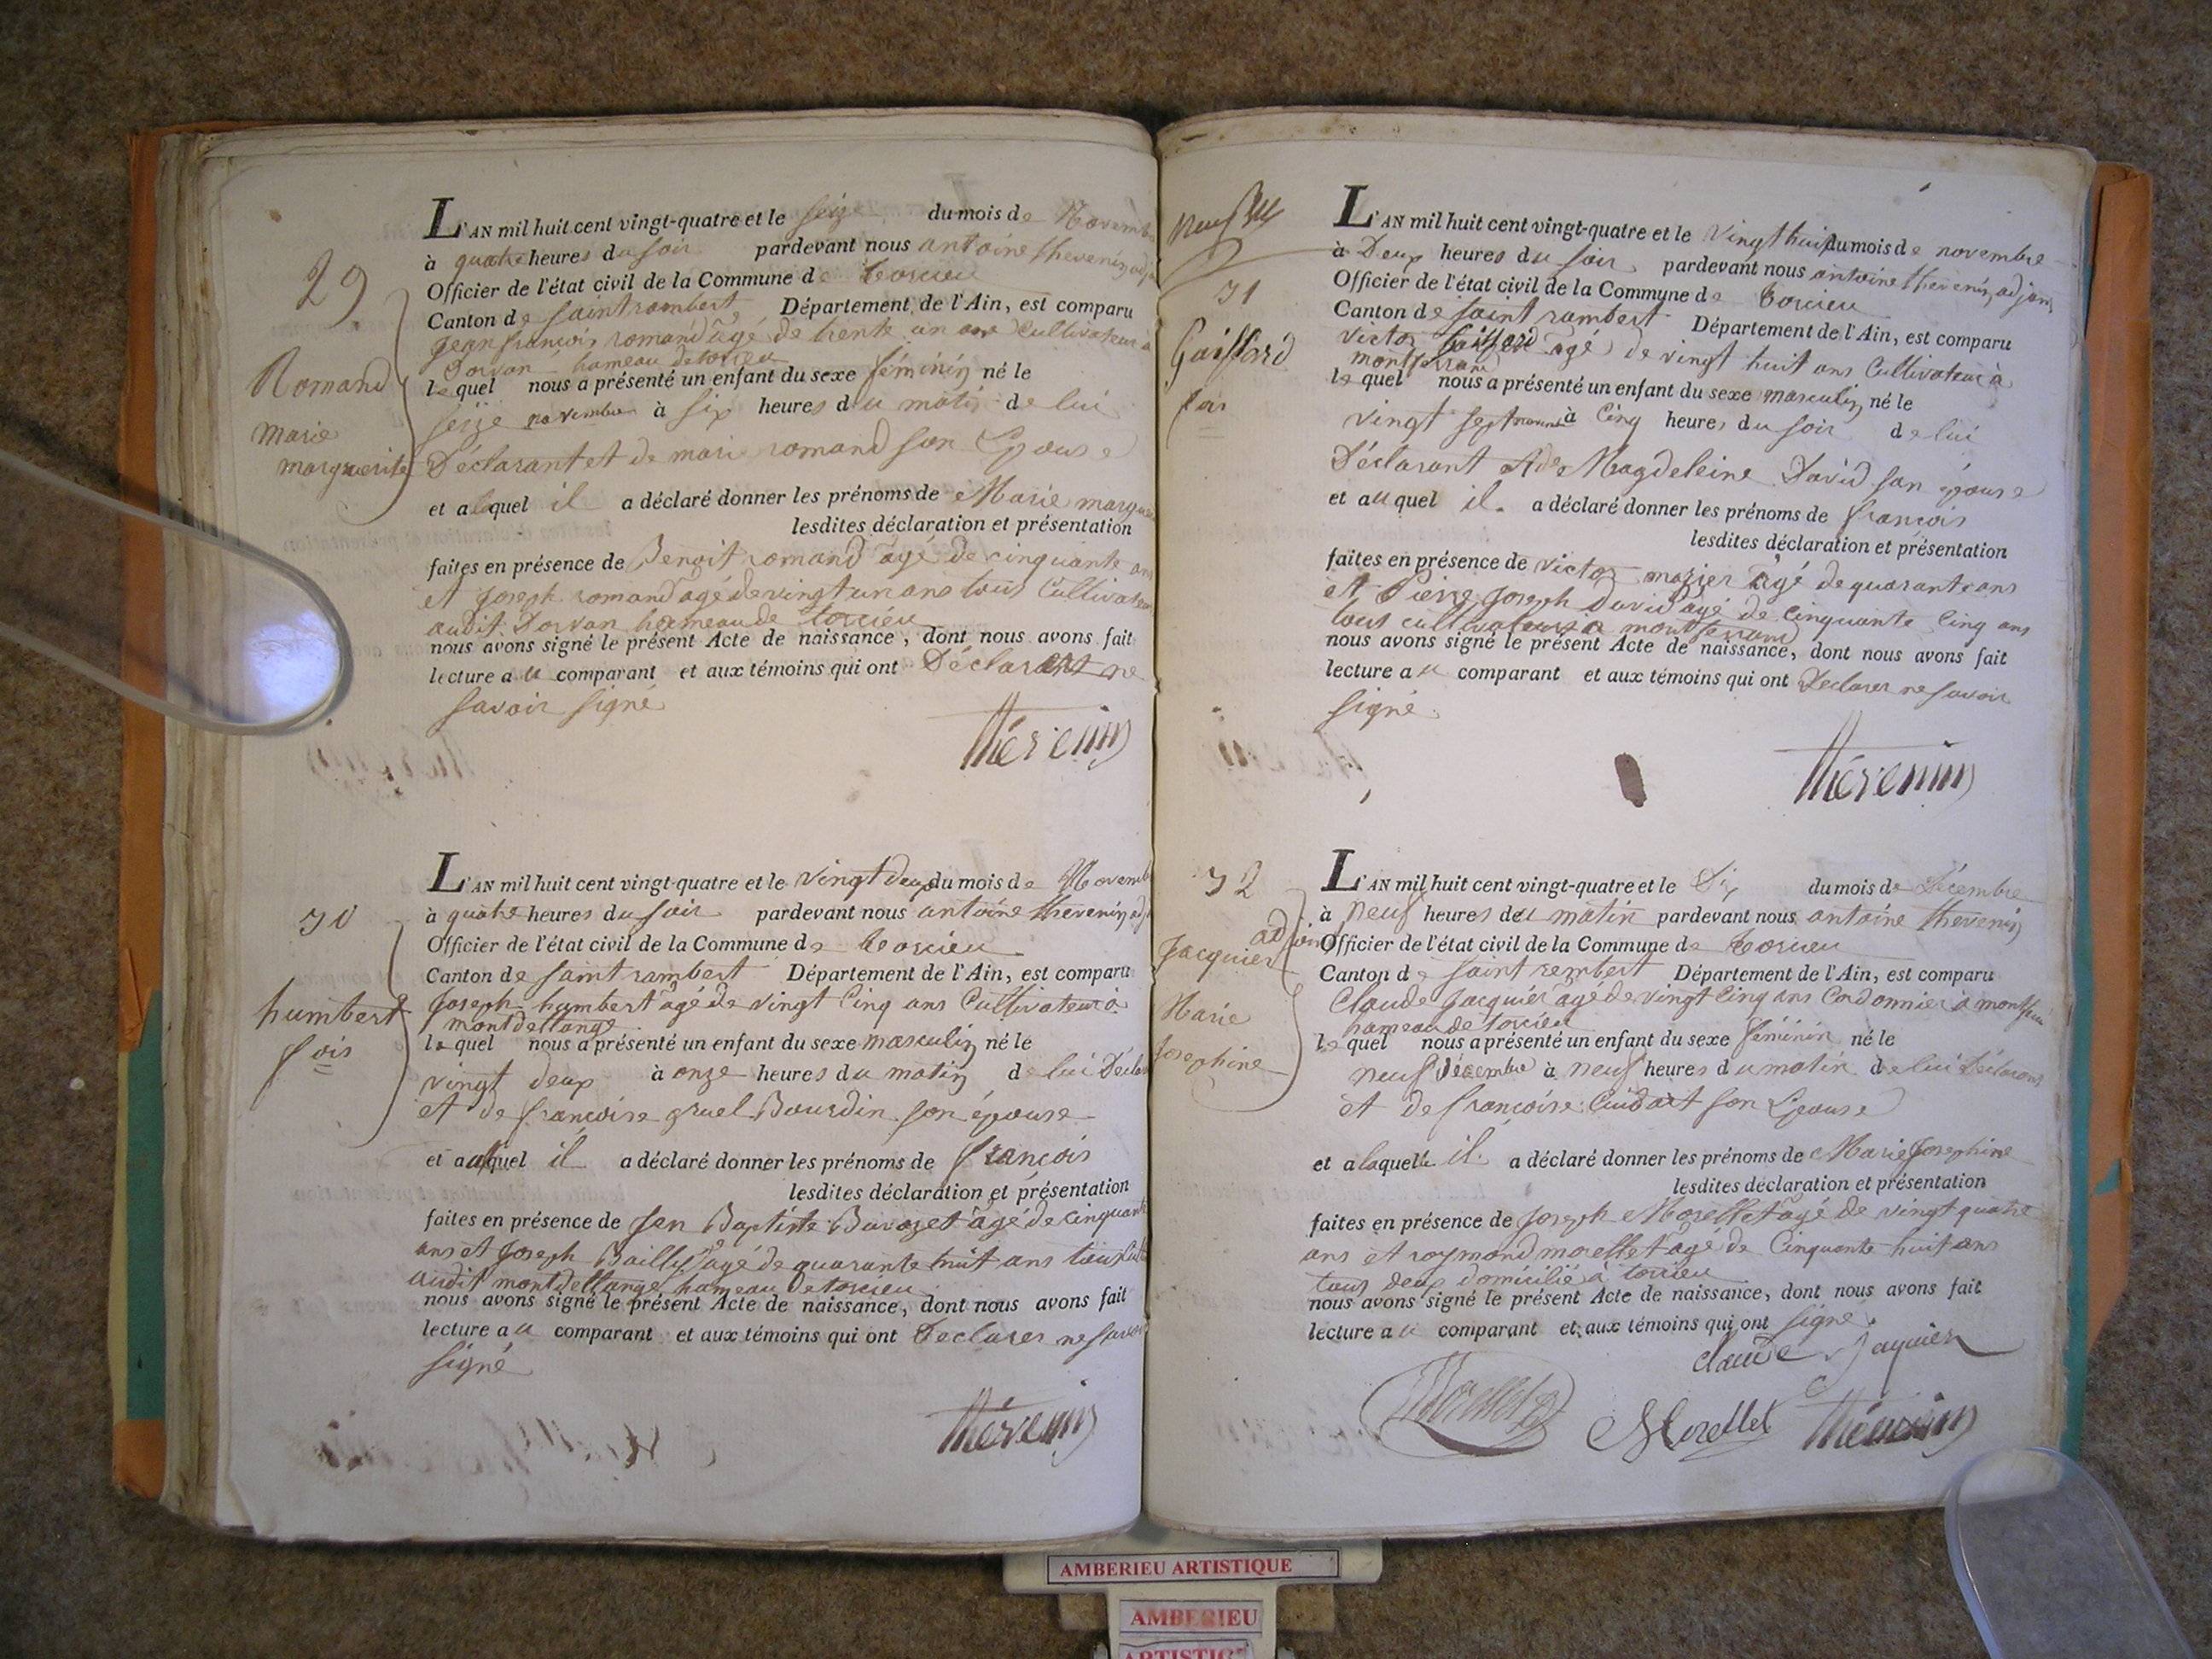 29
Romand
marie
marguerite
L'AN mil huit cent vingt-quatre et le seize du mois de Novemb
à quatre heures du soir pardevant nous antoine thevenin adj
Officier de l'état civil de la Commune de torcieu
Canton de saint rambert Département de l'Ain, est comparu
Jean françois romand âgé de trente un ans Cultivateur à
Dorvan hameau de torcieu
lequel nous a présenté un enfant du sexe féminin né le
seize novembre à six heures du matin de lui
Déclarant et de marie romand son Epouse
et a laquel il a déclaré donner les prénoms de Marie margue
lesdites déclaration et présentation
faites en présence de Benoit romand âgé de cinquante ans
et Joseph romand agé de vingt un ans tous Cultivateu
audit Dorvan hameau de torcieu
nous avons signé le présent Acte de naissance, dont nous avons fait
lecture au comparant et aux témoins qui ont Déclarent ne
savoir signé
thévenin
30
humbert
fois
L'AN mil huit cent vingt-quatre et le vingt deux du mois de Novemb
à quatre heures du soir pardevant nous antoine thevenin adj
Officier de l'état civil de la Commune de torcieu
Canton de saint rambert Département de l'Ain, est comparu
Joseph humbert âgé de vingt Cinq ans Cultivateur à
montdellange
lequel nous a présenté un enfant du sexe masculin né le
vingt deux à onze heures du matin de lui Déclar
et de françoise gruel Bourdin son épouse
et auquel il a déclaré donner les prénoms de françois
lesdites déclaration et présentation
faites en présence de Jen Baptiste Bavozet âgé de cinquante
ans et Joseph Bailly agé de quarante huit ans tous
audit montdellange hameau de torcieu
nous avons signé le présent Acte de naissance, dont nous avons fait
lecture au comparant et aux témoins qui ont Declarer ne savoir
signé
thévenin
31
Gaillard
fois
L'AN mil huit cent vingt-quatre et le vingt huit du mois de novembre
à Deux heures du soir pardevant nous antoine thevenin adjoin
Officier de l'état civil de la Commune de torcieu
Canton de saint rambert Département de l'Ain, est comparu
victor Gaillard agé de vingt huit ans Cultivateur à
montferrand
lequel nous a présenté un enfant du sexe masculin né le
vingt sept à Cinq heures du soir de lui
Déclarant et de Magdeleine David son épouse
et auquel il a déclaré donner les prénoms de françois
lesdites déclaration et présentation
faites en présence de victor mazier âgé de quarante ans
et Pierre Joseph David âgé de cinquante Cinq ans
tous cultivateurs à montferrand
nous avons signé le présent Acte de naissance, dont nous avons fait
lecture au comparant et aux témoins qui ont Declarer ne savoir
signé
thévenin
32
Jacquier
Marie
Josephine
L'AN mil huit cent vingt-quatre et le Dix du mois de Décembre
à neuf heures du matin pardevant nous antoine thevenin
adjoint Officier de l'état civil de la Commune de torcieu
Canton de saint rembert Département de l'Ain, est comparu
Claude Jacquier âgé de vingt Cinq ans Cordonnier à montferr
hameau de torcieu
lequel nous a présenté un enfant du sexe féminin né le
neuf Décembre à neuf heures du matin de lui Déclarant
et de françoise Cuidart son Epouse
et a laquelle il a déclaré donner les prénoms de Marie Josephine
lesdites déclaration et présentation
faites en présence de Joseph Morellet agé de vingt quatre
ans et raymond morellet agé de Cinquante huit ans
tous deux domicilié à torcieu
nous avons signé le présent Acte de naissance, dont nous avons fait
lecture au comparant et aux témoins qui ont signé
claude Jaquier
Morellet
Morellet thévenin
AMBERIEU ARTISTIQUE
AMBERIEU
ARTISTIC